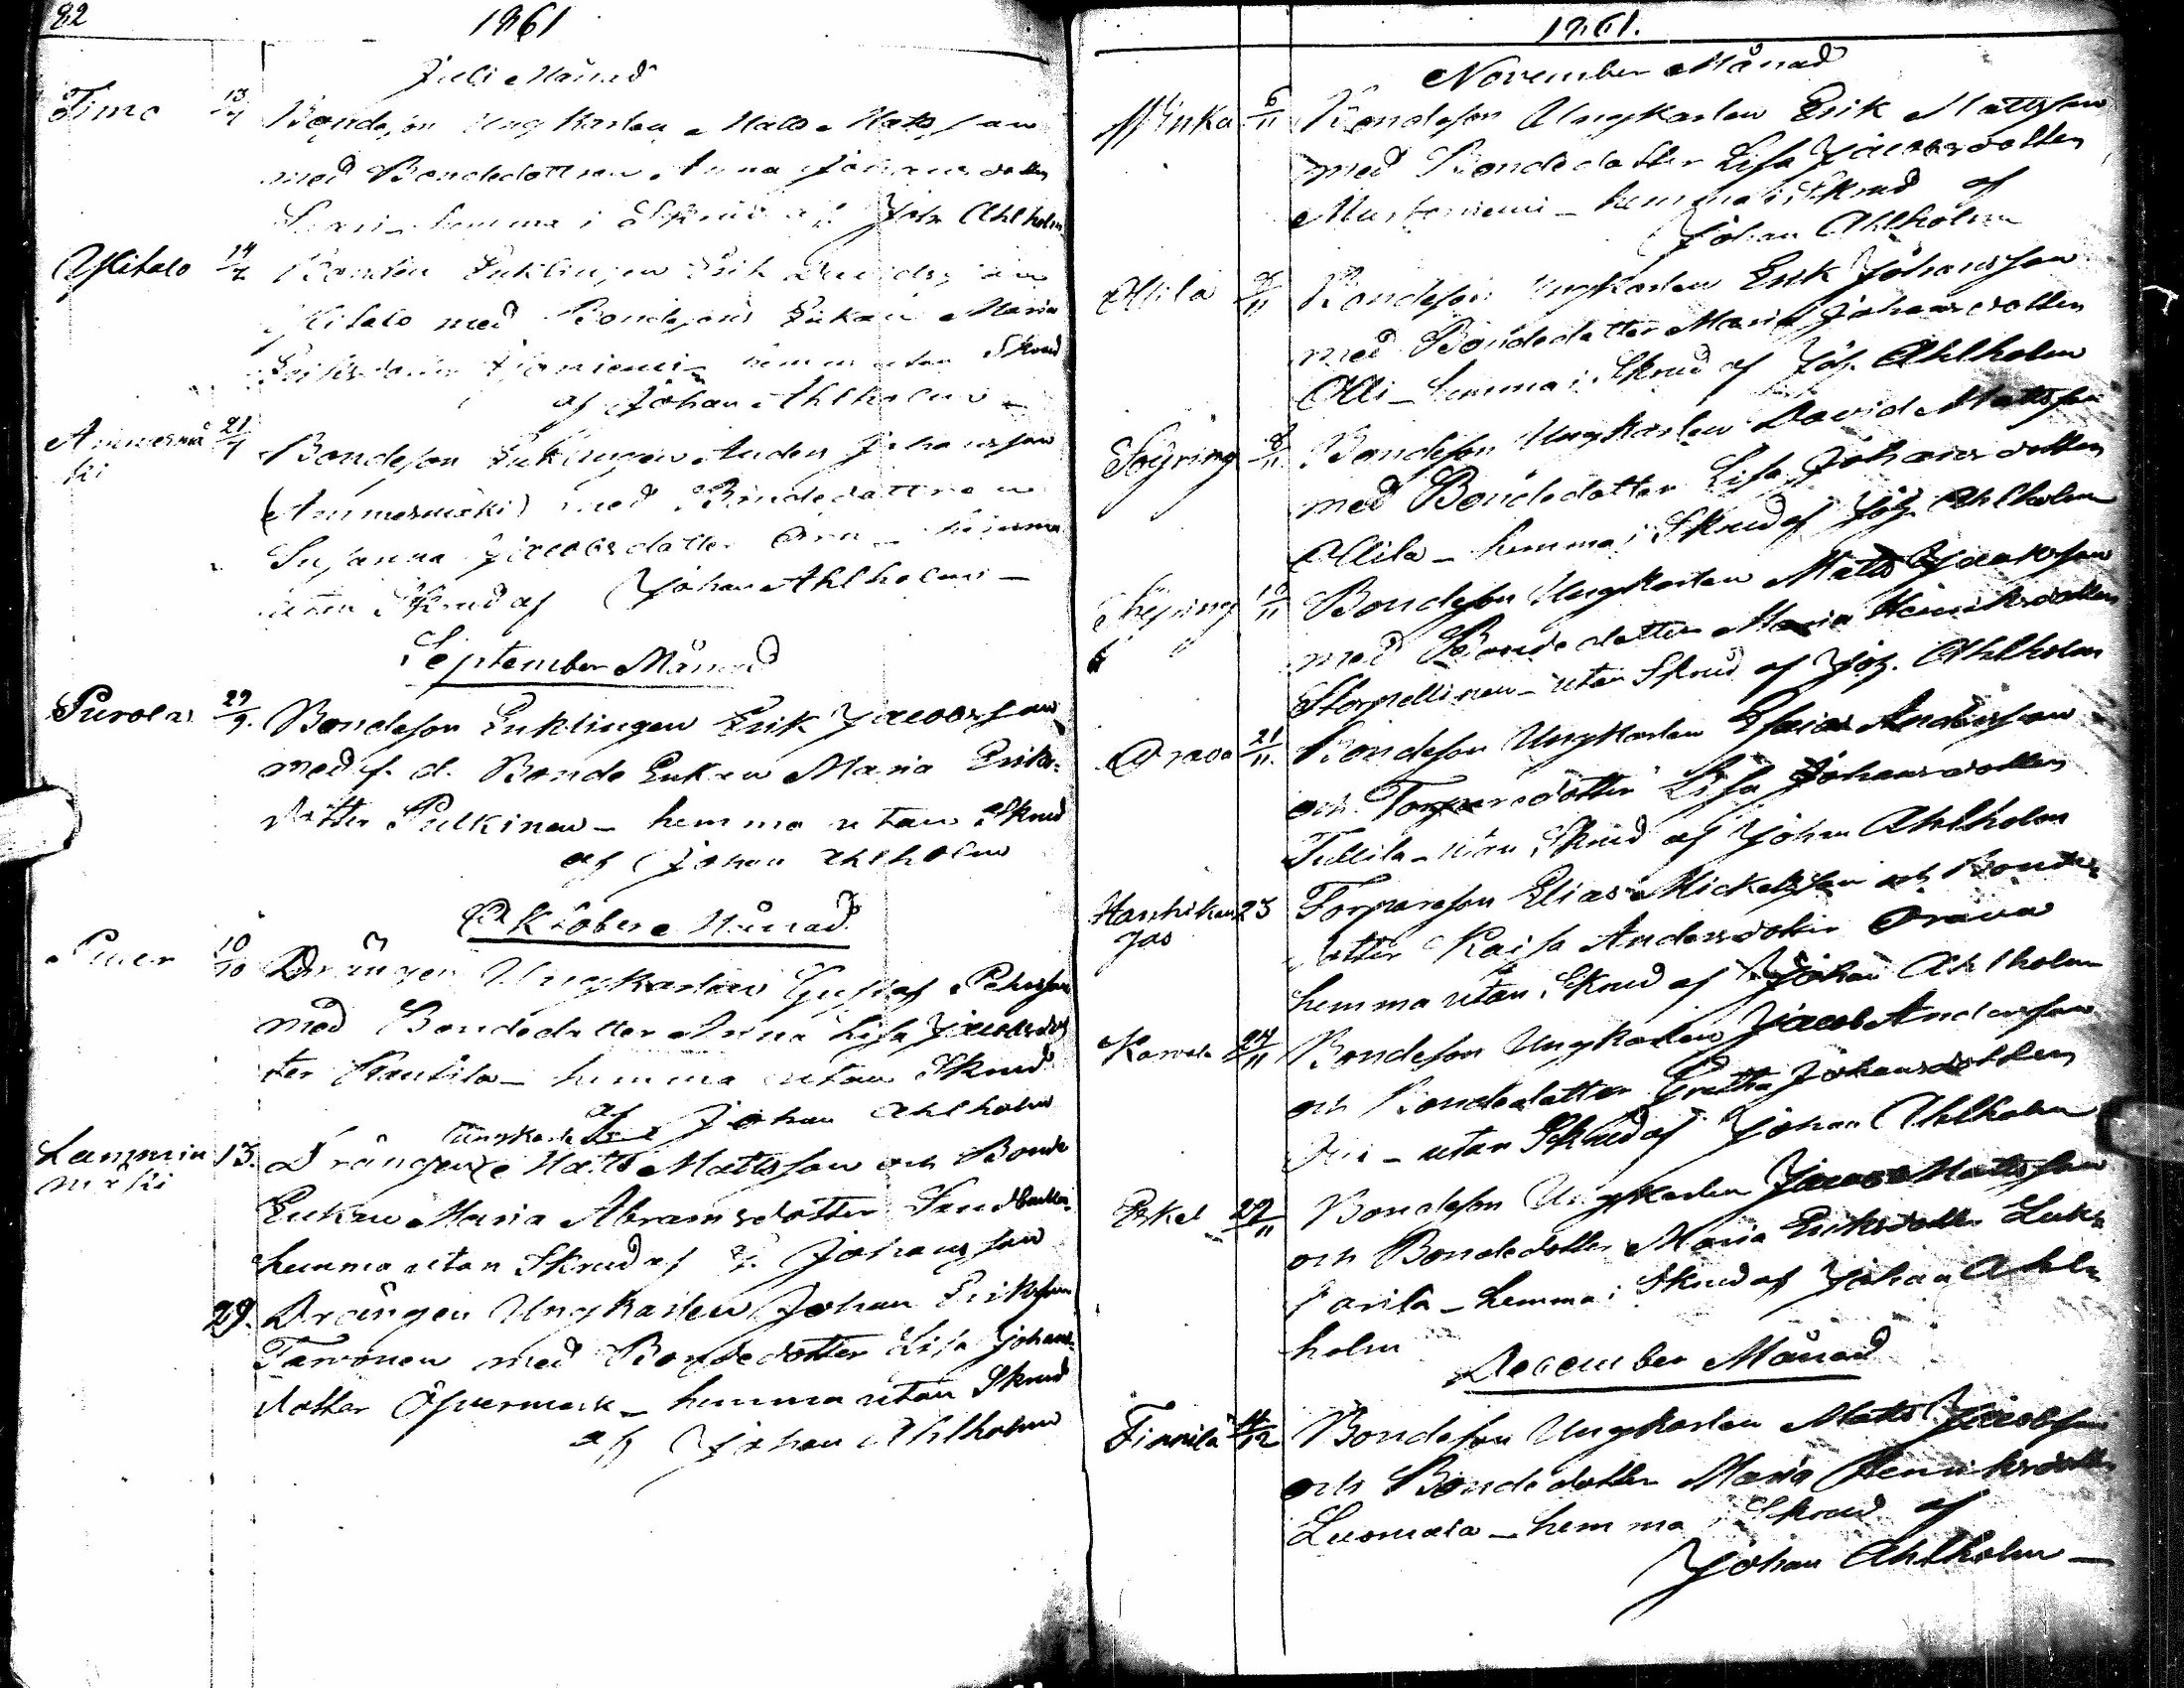 82
1861
Juli Månad
Timo 13/7 Bondeson Ungkarlen Matts Mats son
med Bondedottren Anna Johansdotter
hemma i Skrud af Joh Ahlholm
Ylitalo 14/7 Bonden Enklingen Erik Davidsson
Ylitalo med Bondesons Enkan Maria
utan Skrud
af Johan Ahlholm
Ammesmä 21/7 Bondeson Enklingen Anders Johansson
ki
(Ammesmäki) med Bondedottren
Susanna Jacobsdotter hemma
utan Skrud af Johan Ahlholm
September Månad
Purola 29/9. Bondeson Enklingen Erik Jacobsson
med f. d. Bonde Enkan Maria Eriks
dotter Pulkinen - hemma utan Skrud
af Johan Ahlholm
Oktober Månad
10/10 Drängen Ungkarlen Gustaf Pehrsson
med Bondedotter Anna Lisa Jacobsdot
ter Rantila - hemma utan Skrud
af Johan Ahlholm
Lammin 13. Drängen Ungkarlen Matts Mattsson och Bonde
mäki
Enkan Maria Abramsdotter
hemma utan Skrud af J. Johansson
29. Drängen Ungkarlen Johan Eriksson
Tarvonen med Bondedotter Lisa Johans
dotter Öfvermark - hemma utan Skrud
af Johan Ahlholm
1861.
November Månad
Minka 6/11 Bondeson Ungkarlen Erik Mattsson
med Bondedotter Lisa Jacobsdotter
Mustaniemi - hemma i Skrud af
Johan Ahlholm
Ollila /11 Bondeson Ungkarlen Erik Johansson
med Bondedotter Maria Johansdotter
Olli - hemma i Skrud af Joh. Ahlholm
Söyring 8/11 Bondeson Ungkarlen David Mattsson
med Bondedotter Lisa Johansdotter
Ollila - hemma i Skrud af Joh. Ahlholm
/11 Bondeson Ungkarlen Matts Jacobsson
med Bondedotter Maria Henriksdotter
Storpellinen - utan Skrud af Joh. Ahlholm
Orava 21/11 Bondeson Ungkarlen Esaias Andersson
och Torparedotter Lisa Johansdotter
Tullila - utan Skrud af Johan Ahlholm
Hanhikan 23 Torpareson Elias Mickelsson och Bonde
jas
dotter Kaisa Andersdotter Orava
hemma utan Skrud af Johan Ahlholm
Karvola 24/11 Bondeson Ungkarlen Jacob Andersson
och Bondedotter Gretha Johansdotter
- utan Skrud af Johan Ahlholm
Eskel 29/11 Bondeson Ungkarlen Jacob Mattsson
och Bondedotter Maria Eriksdotter Luk
karila - hemma i Skrud af Johan Ahl
holm
December Månad
Finnilä /12 Bondeson Ungkarlen Matts Jacobsson
och Bondedotter Maria Henriksdotter
Luomala - hemma i Skrud af
Johan Ahlholm -